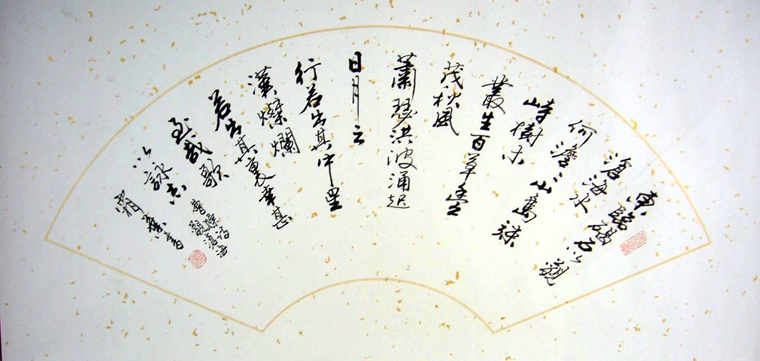 東臨碣石以觀
滄海水
何澹〻山島竦
峙樹木
叢生百草豐
茂秋風
蕭瑟洪波涌起
日月之
行若出其中星
漢燦爛
若出其裏幸甚
至哉歌
以詠志